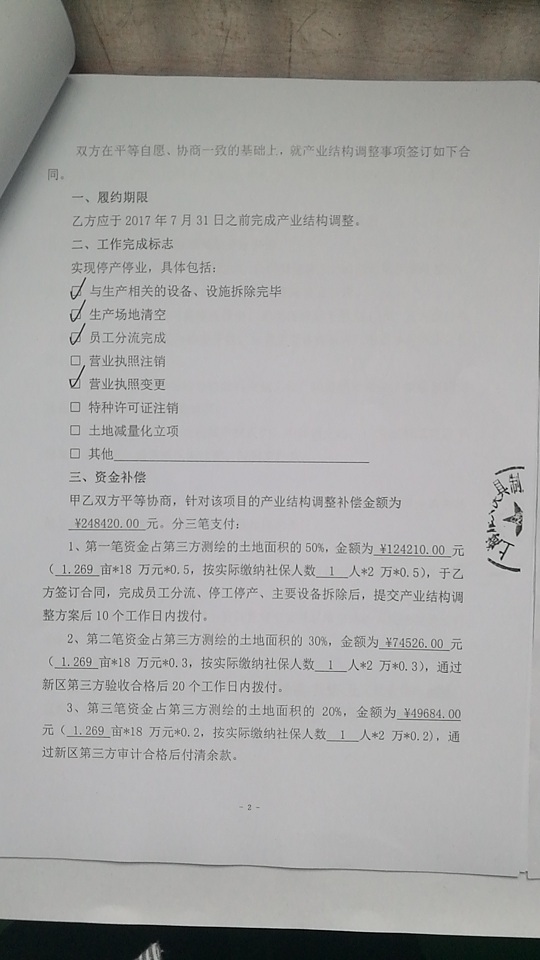 双方在平等自愿、协商一致的基础上，就产业结构调整事项签订如下合
同。
一、履约期限
乙方应于 2017 年 7 月 31 日之前完成产业结构调整。
二、工作完成标志
实现停产停业，具体包括：
☑ 与生产相关的设备、设施拆除完毕
☑ 生产场地清空
☑ 员工分流完成
☐ 营业执照注销
☑ 营业执照变更
☐ 特种许可证注销
☐ 土地减量化立项
☐ 其他
三、资金补偿
甲乙双方平等协商，针对该项目的产业结构调整补偿金额为
¥248420.00 元。分三笔支付：
1、第一笔资金占第三方测绘的土地面积的 50%，金额为 ¥124210.00 元
（ 1.269 亩*18 万元*0.5，按实际缴纳社保人数 1 人*2 万*0.5），于乙
方签订合同，完成员工分流、停工停产、主要设备拆除后，提交产业结构调
整方案后 10 个工作日内拨付。
2、第二笔资金占第三方测绘的土地面积的 30%，金额为 ¥74526.00 元
（ 1.269 亩*18 万元*0.3，按实际缴纳社保人数 1 人*2 万*0.3），通过
新区第三方验收合格后 20 个工作日内拨付。
3、第三笔资金占第三方测绘的土地面积的 20%，金额为 ¥49684.00
元（ 1.269 亩*18 万元*0.2，按实际缴纳社保人数 1 人*2 万*0.2），通
过新区第三方审计合格后付清余款。
- 2 -